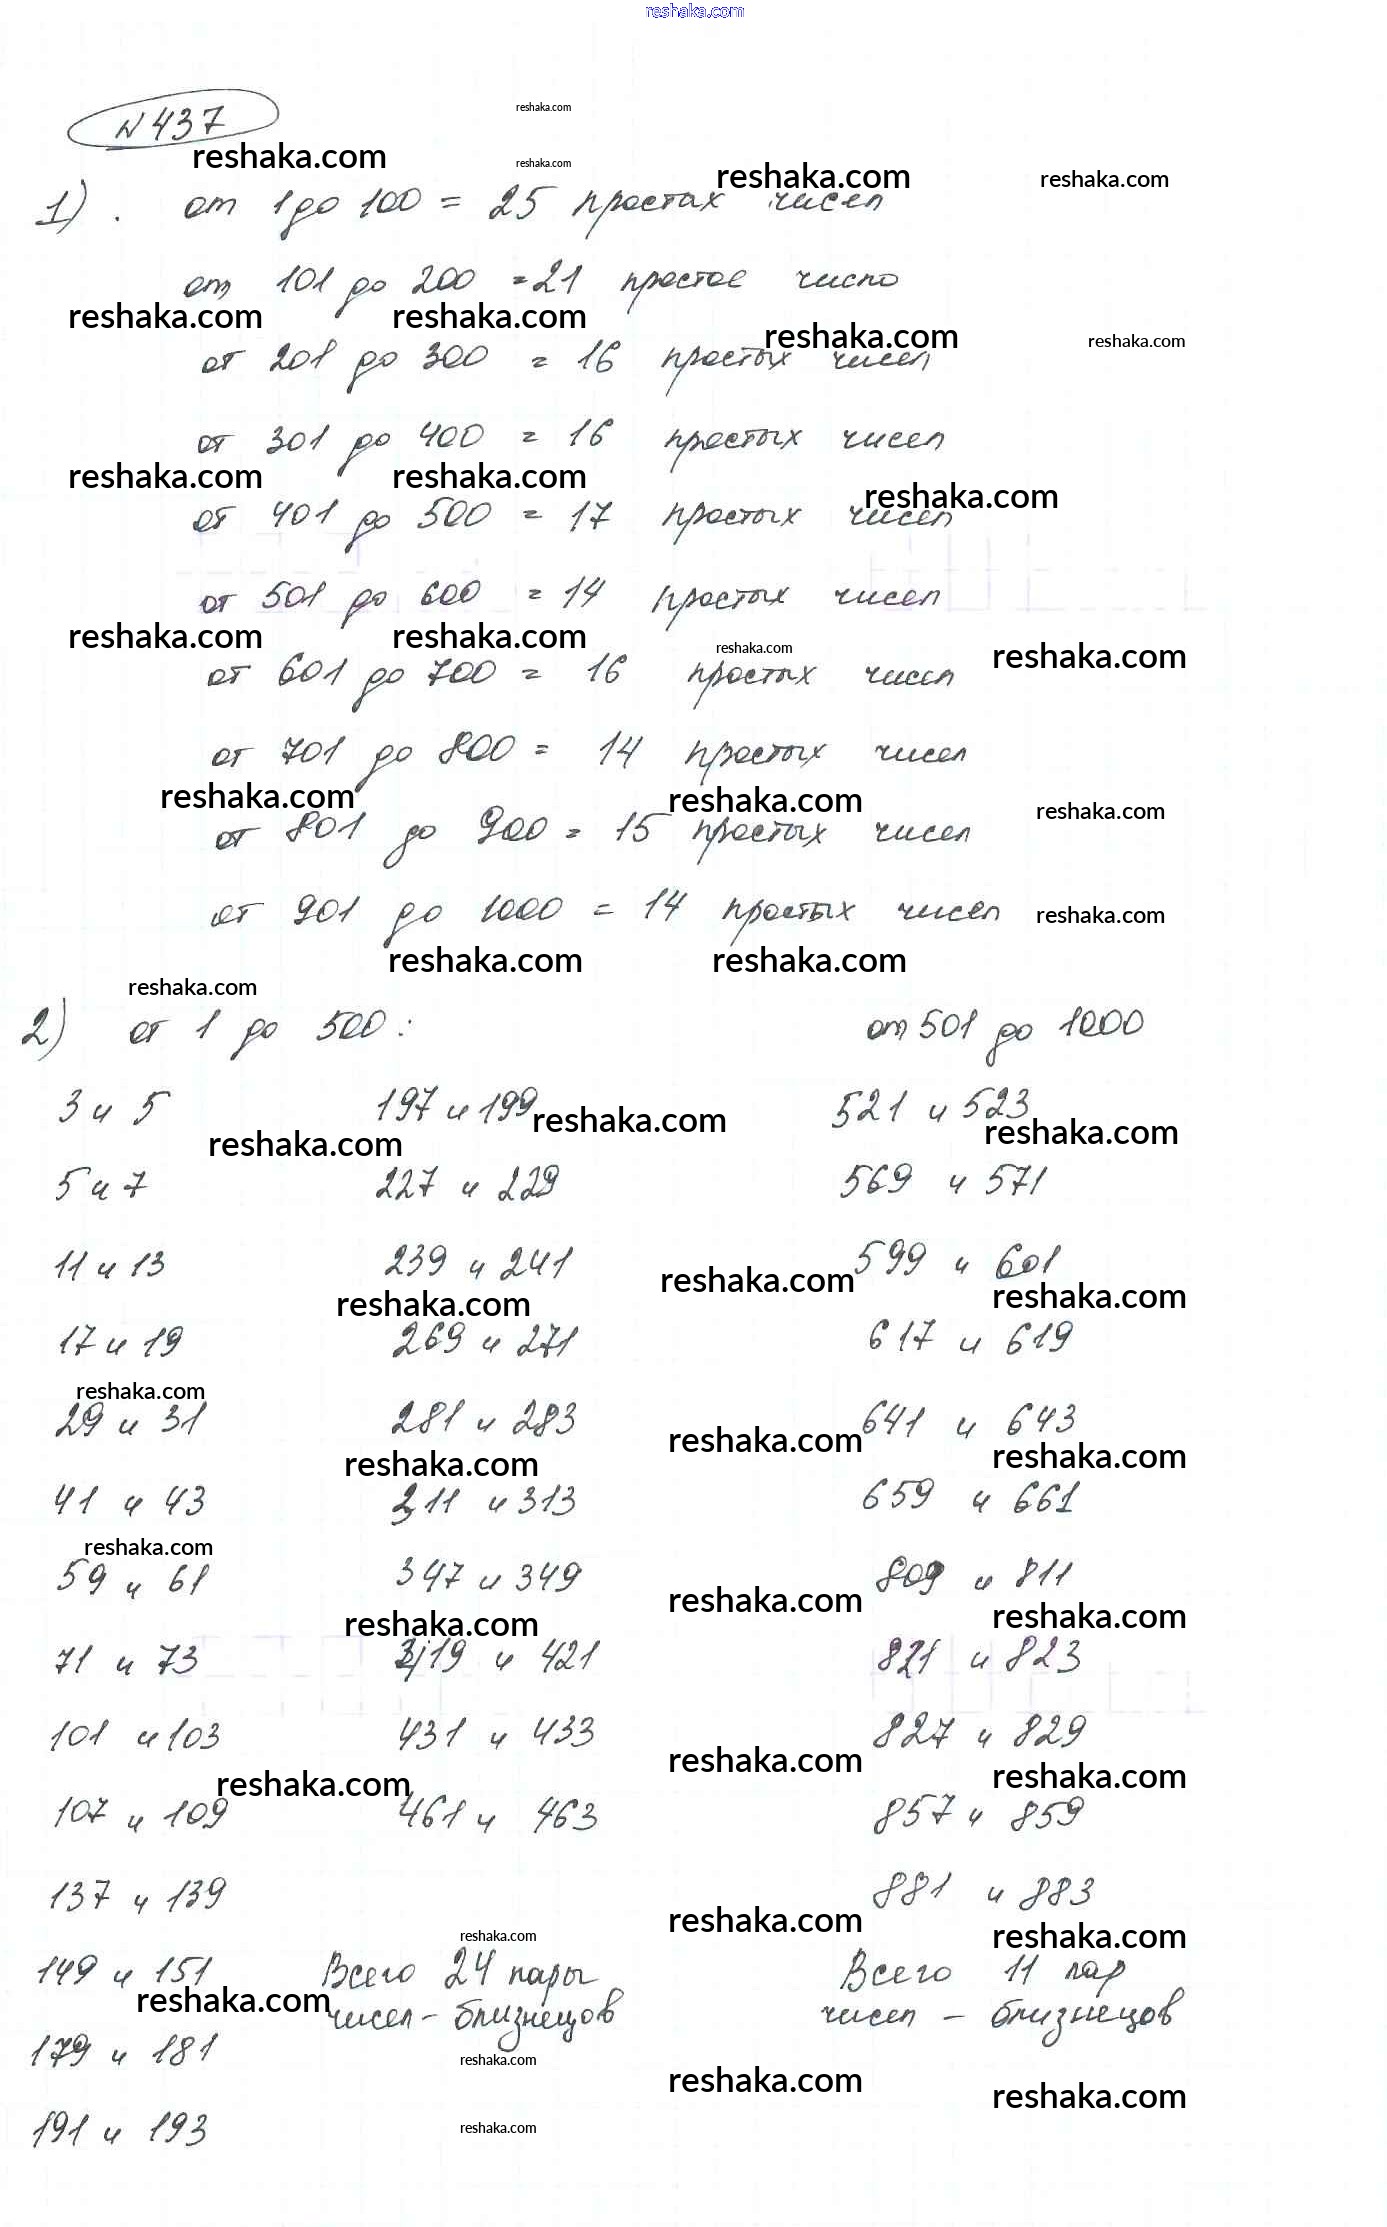 reshaka.com
№ 437
reshaka.com
reshaka.com
reshaka.com
reshaka.com
reshaka.com
1). от 1 до 100 = 25 простах чисел
от 101 до 200 = 21 простое число
reshaka.com
reshaka.com
reshaka.com
reshaka.com
от 201 до 300 = 16 простых чисел
от 301 до 400 = 16 простых чисел
reshaka.com
reshaka.com
reshaka.com
от 401 до 500 = 17 простых чисел
от 501 до 600 = 14 простых чисел
reshaka.com
reshaka.com
reshaka.com
reshaka.com
от 601 до 700 = 16 простых чисел
от 701 до 800 = 14 простых чисел
reshaka.com
reshaka.com
reshaka.com
от 801 до 900 = 15 простых чисел
от 901 до 1000 = 14 простых чисел
reshaka.com
reshaka.com
reshaka.com
reshaka.com
2) от 1 до 500: от 501 до 1000
3 и 5 197 и 199 521 и 523
reshaka.com
reshaka.com
reshaka.com
5 и 7 227 и 229 569 и 571
11 и 13 239 и 241 599 и 601
reshaka.com
reshaka.com
reshaka.com
17 и 19 269 и 271 617 и 619
reshaka.com
29 и 31 281 и 283 641 и 643
reshaka.com
reshaka.com
reshaka.com
41 и 43 311 и 313 659 и 661
reshaka.com
59 и 61 347 и 349 809 и 811
reshaka.com
reshaka.com
reshaka.com
71 и 73 и 421 821 и 823
101 и 103 431 и 433 827 и 829
reshaka.com
reshaka.com
reshaka.com
107 и 109 461 и 463 857 и 859
137 и 139 881 и 883
reshaka.com
reshaka.com
reshaka.com
149 и 151 Всего 24 пары Всего 11 пар
reshaka.com
чисел - близнецов чисел - близнецов
179 и 181
reshaka.com
reshaka.com
reshaka.com
191 и 193
reshaka.com